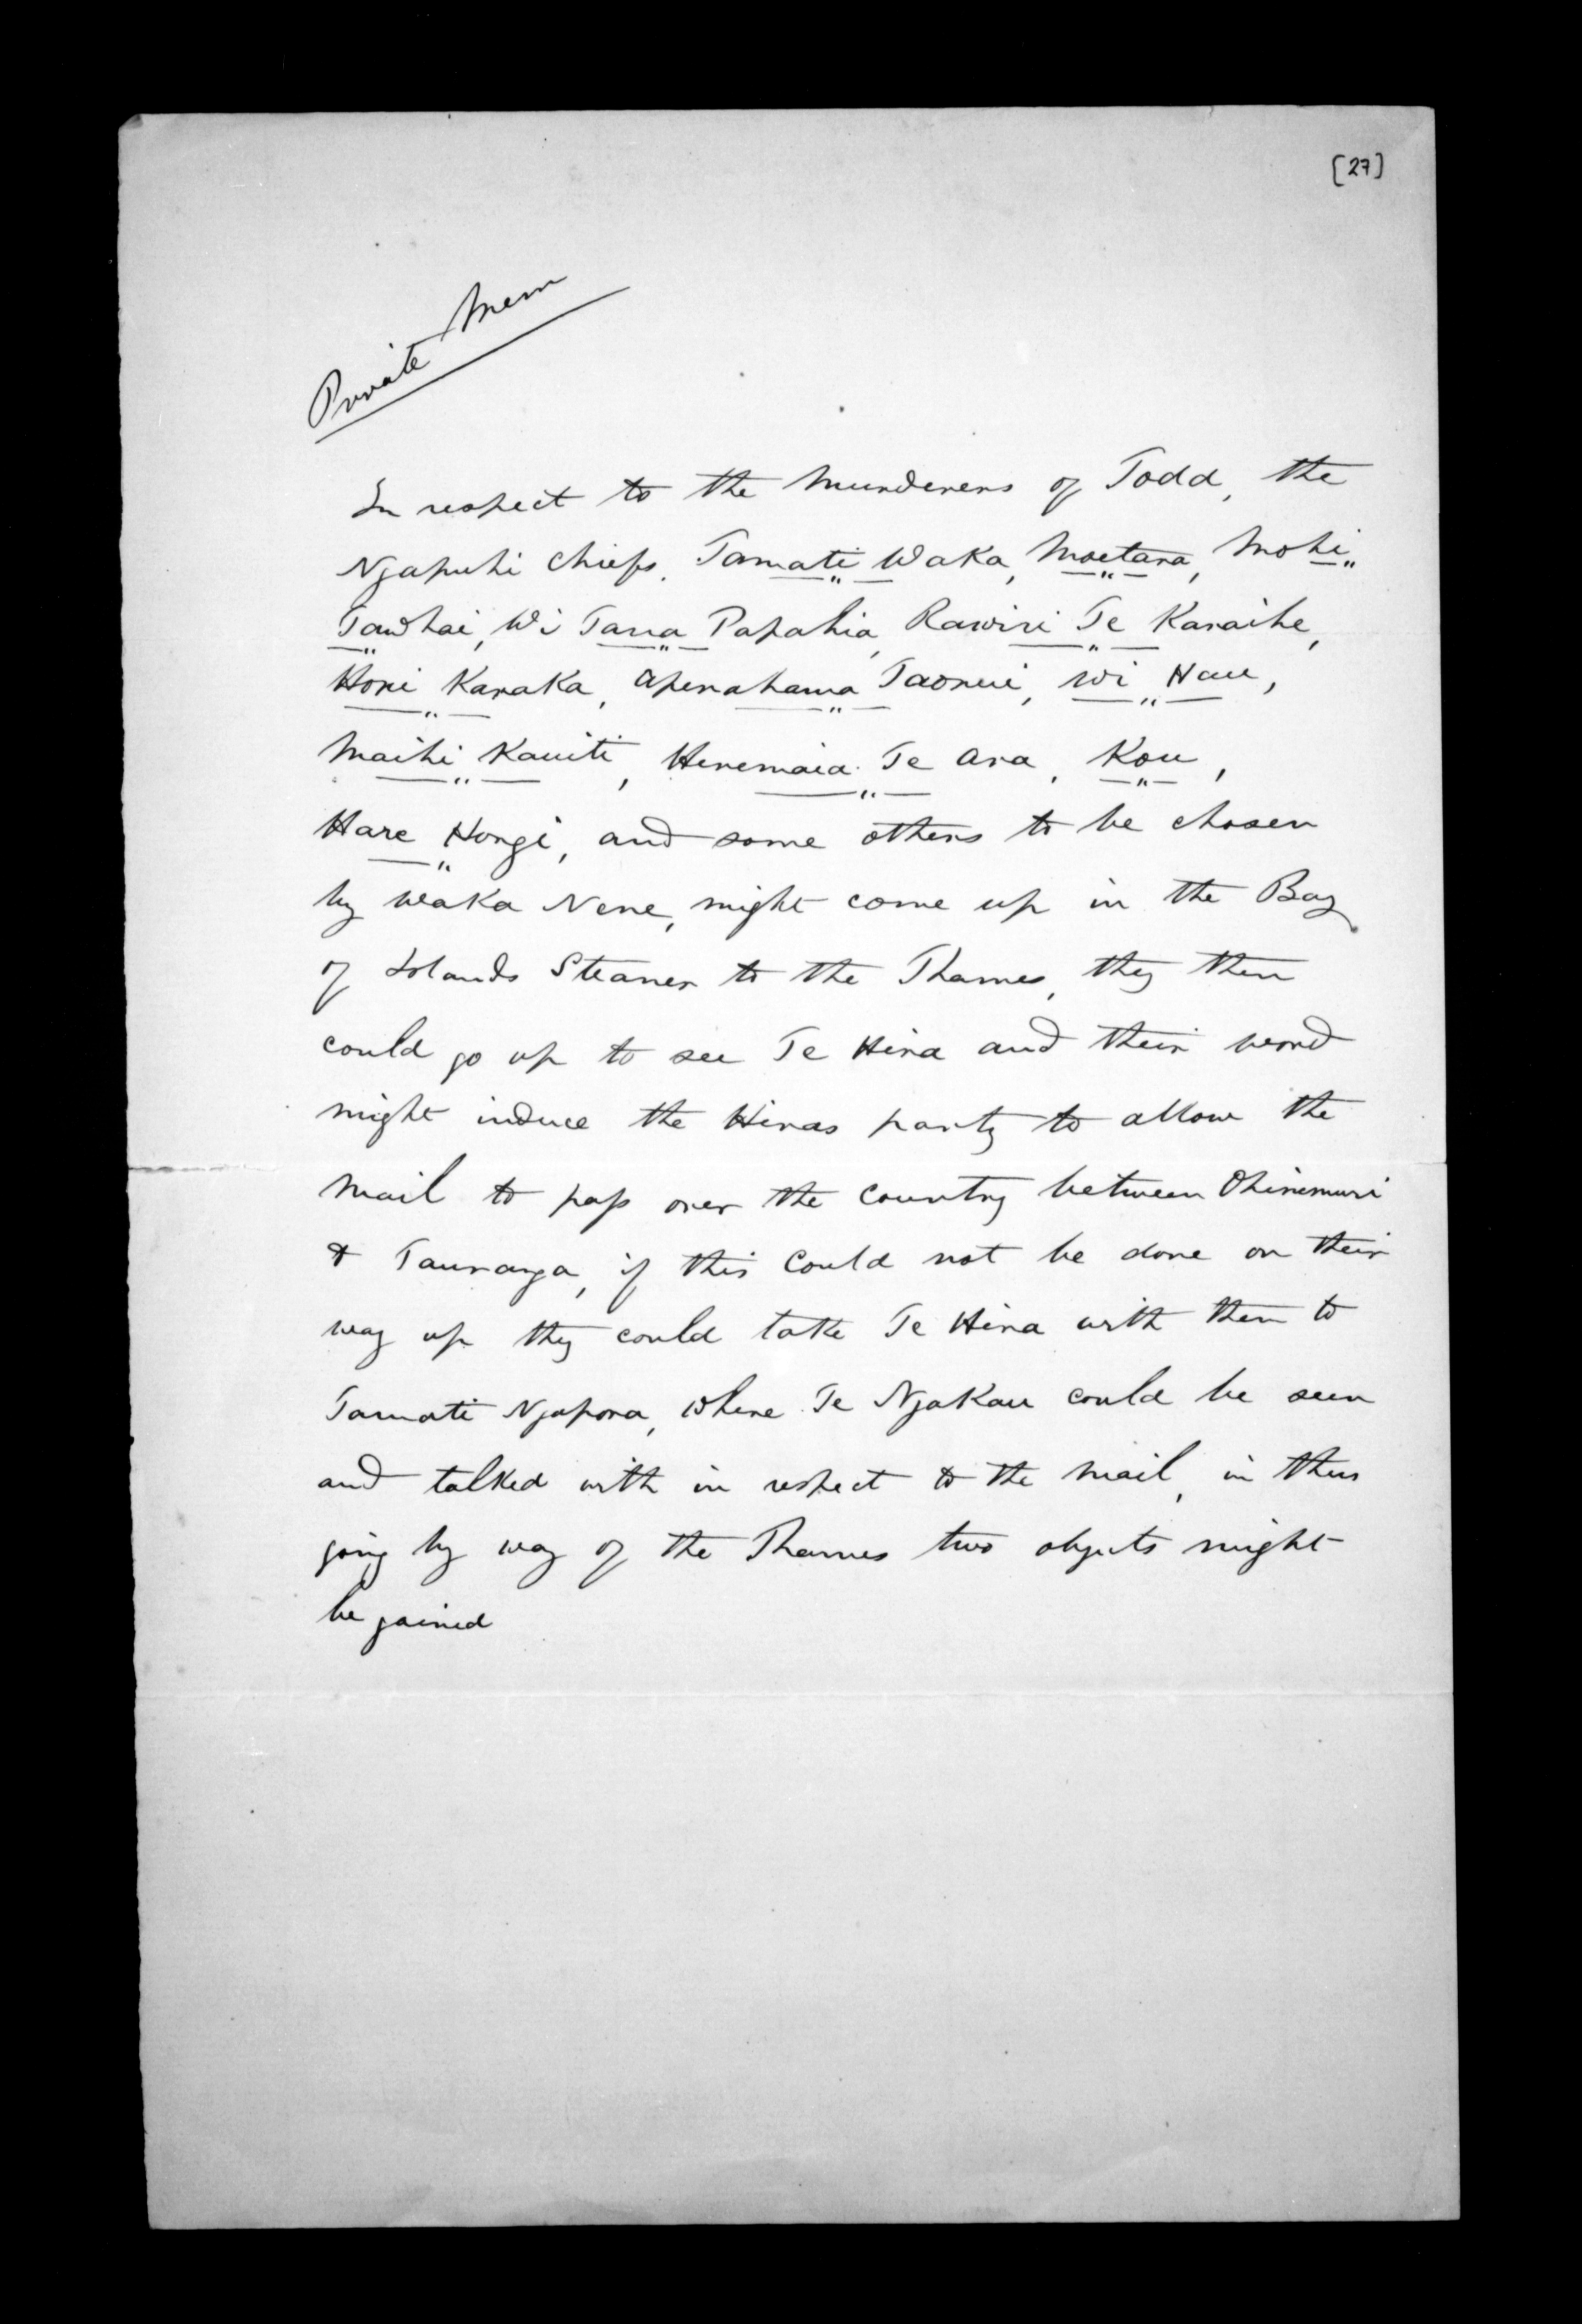 [27]
Private Mem
In respect to the Murderers of Todd, the
Ngapuhi Chiefs, Tamati Waka, Moetara, Mohi
Tawhai, Wi Tana Papahia, Rawiri Te Karaihe,
Hori Karaka, Aperahama Taonui, Wi Hau,
Maihi Kawiti, Heremaia Te Ara, Kou,
Hare Hongi, and some others to be chosen
by Waka Nene, might come up in the Bay
of Islands Steamer to the Thames, they then
could go up to see Te Hira and their word
might induce the Hiras party to allow the
Mail to pass over the Country between Ohinemuri
& Tauranga, if this Could not be done on their
way up they could take Te Hira with them to
Tamati Ngapora, where Te Ngakau could be seen
and talked with in respect to the Mail, in thus
going by way of the Thames two objects might
be gained